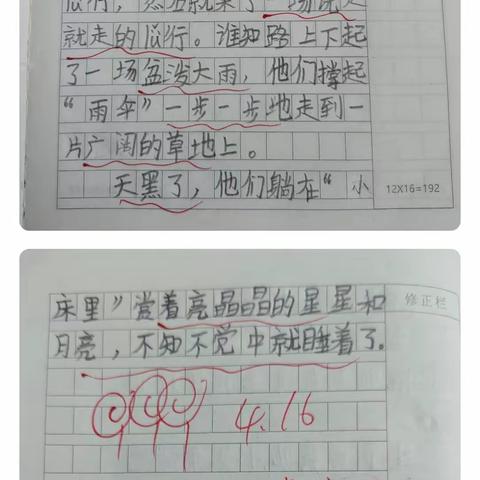 lǚ行，然后就来了一场说走
就走的lǚ行。谁知路上下起
了一场盆泼大雨，他们撑起
“雨伞”一步一步地走到一
片广阔的草地上。
天黑了，他们躺在“小
12X16=192
床里”赏着亮晶晶的星星和
修正栏
月亮，不知不觉中就睡着了.
4.16